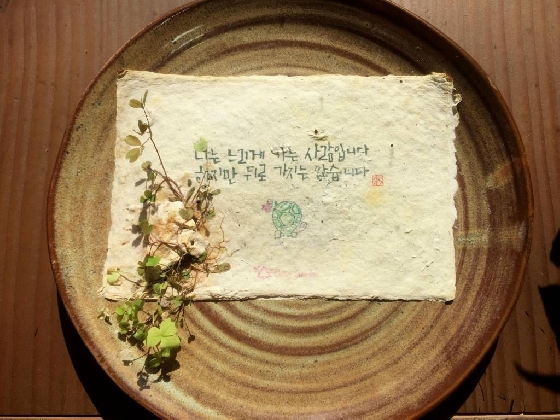 나는 느리게 가는 사람입니다
하지만 뒤로 가지는 않습니다